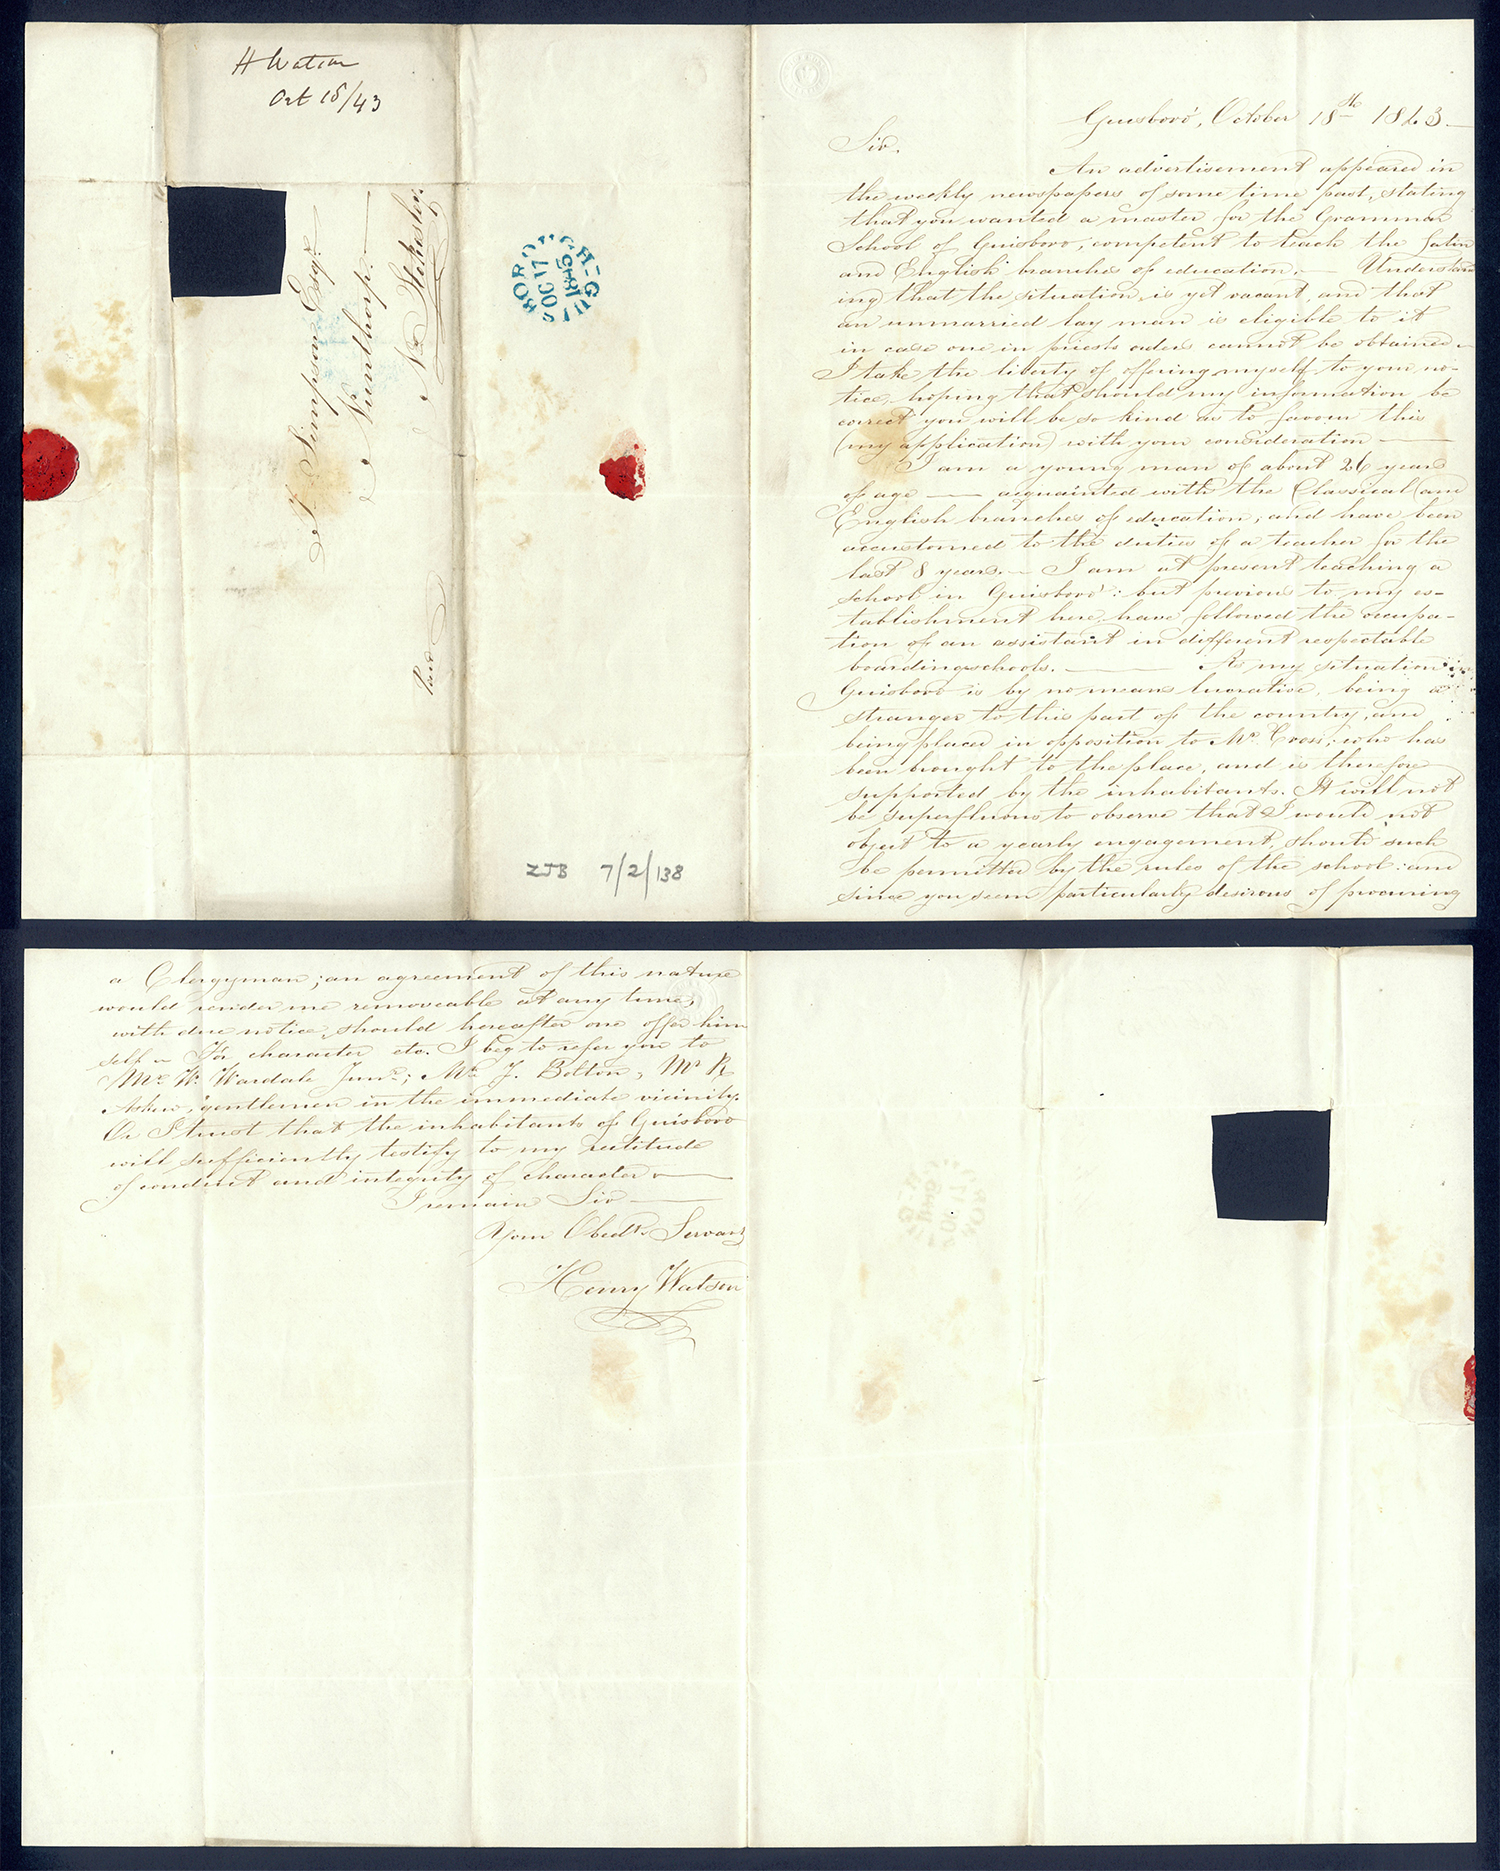 H Watson
Oct 18/43
T. Simpson Esqr
Nunthorp
Nr Stokesley
Paid
GUISBOR
OC 17
1845
ZJB 7/2/138
Guisboro', October 18th 1843.
Sir.
An advertisement appeared in
the weekly newspapers of some time past, stating
that you wanted a master for the Grammar
School of Guisboro, competent to teach the Latin
and English branches of education. — Understand
ing that the situation is yet vacant, and that
an unmarried lay man is eligible to it
in case one in priests orders cannot be obtained
I take the liberty of offering myself to your no-
tice, hoping that should my information be
correct you will be so kind as to favour this
(my application) with your consideration —
I am a young man of about 26 years
of age — acquainted with the Classical and
English branches of education; and have been
accustomed to the duties of a teacher for the
last 8 years. — I am at present teaching a
school in Guisboro': but previous to my es-
tablishment here, have followed the occupa-
tion of an assistant in different respectable
boarding schools. — As my situation in
Guisboro is by no means lucrative, being a
stranger to this part of the country, and
being placed in opposition to Mr. Cross; who has
been brought to the place, and is therefore
supported by the inhabitants. It will not
be superfluous to observe that I would not
object to a yearly engagement, should such
be permitted by the rules of the school: and
since you seem particularly desirous of procuring
a Clergyman; an agreement of this nature
would render me removeable at any time,
with due notice, should hereafter one offer him
self. For character etc. I beg to refer you to
Mr. W. Wardale Junr.; Mr. J. Bolton, Mr R
gentlemen in the immediate vicinity.
Or I trust that the inhabitants of Guisboro
will sufficiently testify to my rectitude
of conduct and integrity of character
I remain Sir
Your Obedt. Servant
Henry Watson